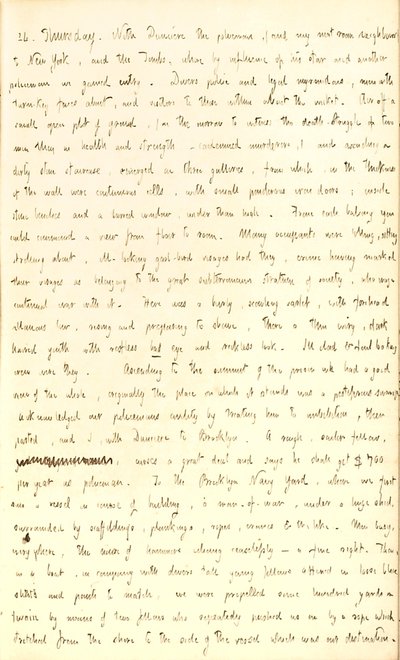 26. Thursday. With Dunsiere the policeman, (and my next room neighbour)
to New York, and the Tombs, where by influence of his star and another
policeman we gained entry. Divers police and legal myrmidons, men with
turnkey faces about, and visitors to those within about the wicket. Over a
small open plot of ground, (on the morrow to witness the death struggle of two
men they in health and strength — condemned murderers,) and ascending a
dirty stone staircase, emerged on three galleries, from which, in the thickness
of the wall were continuous cells, with small ponderous iron doors; inside
stone floors and a barred window, under than high. From each balcony you
could command a view from floor to room. Many occupants were lolling, sitting
strolling about, ill-looking gaol-bird visages had they, crime having marked
their visages as belonging to the great subterranean stratum of society, who wage
continual war with it. Here was a burly, scowling ruffian, with forehead
villanous low, rising and preparing to shave, there a thin wiry, dark
haired youth with restless bad eye and reckless look. Ill clad & foul looking
were they. Ascending to the summit of the prison we had a good
view of the whole, originally the place on which it stands was a pestiferous swamp.
Acknowledged our policemans civility by treating him to refreshment, then
parted, and I, with Dunsiere to Brooklyn. A rough, sailor fellow,
curses a great deal and says he shall get $700
per year as policeman. To the Brooklyn Navy Yard, where we first
saw a vessel in course of building, a man-of-war, under a huge shed,
surrounded by scaffoldings, plankings, ropes, cranes & the like. Men busy,
everywhere, the noise of hammers clinking ceaselessly — a fine sight. Then,
in a boat, in company with divers tall young fellows attired in loose blue
shirts and pants to match, we were propelled some hundred yards a-
stream by means of two fellows who repeatedly pushed us on by a rope which
stretched from the shore to the side of the vessel which was our destination.